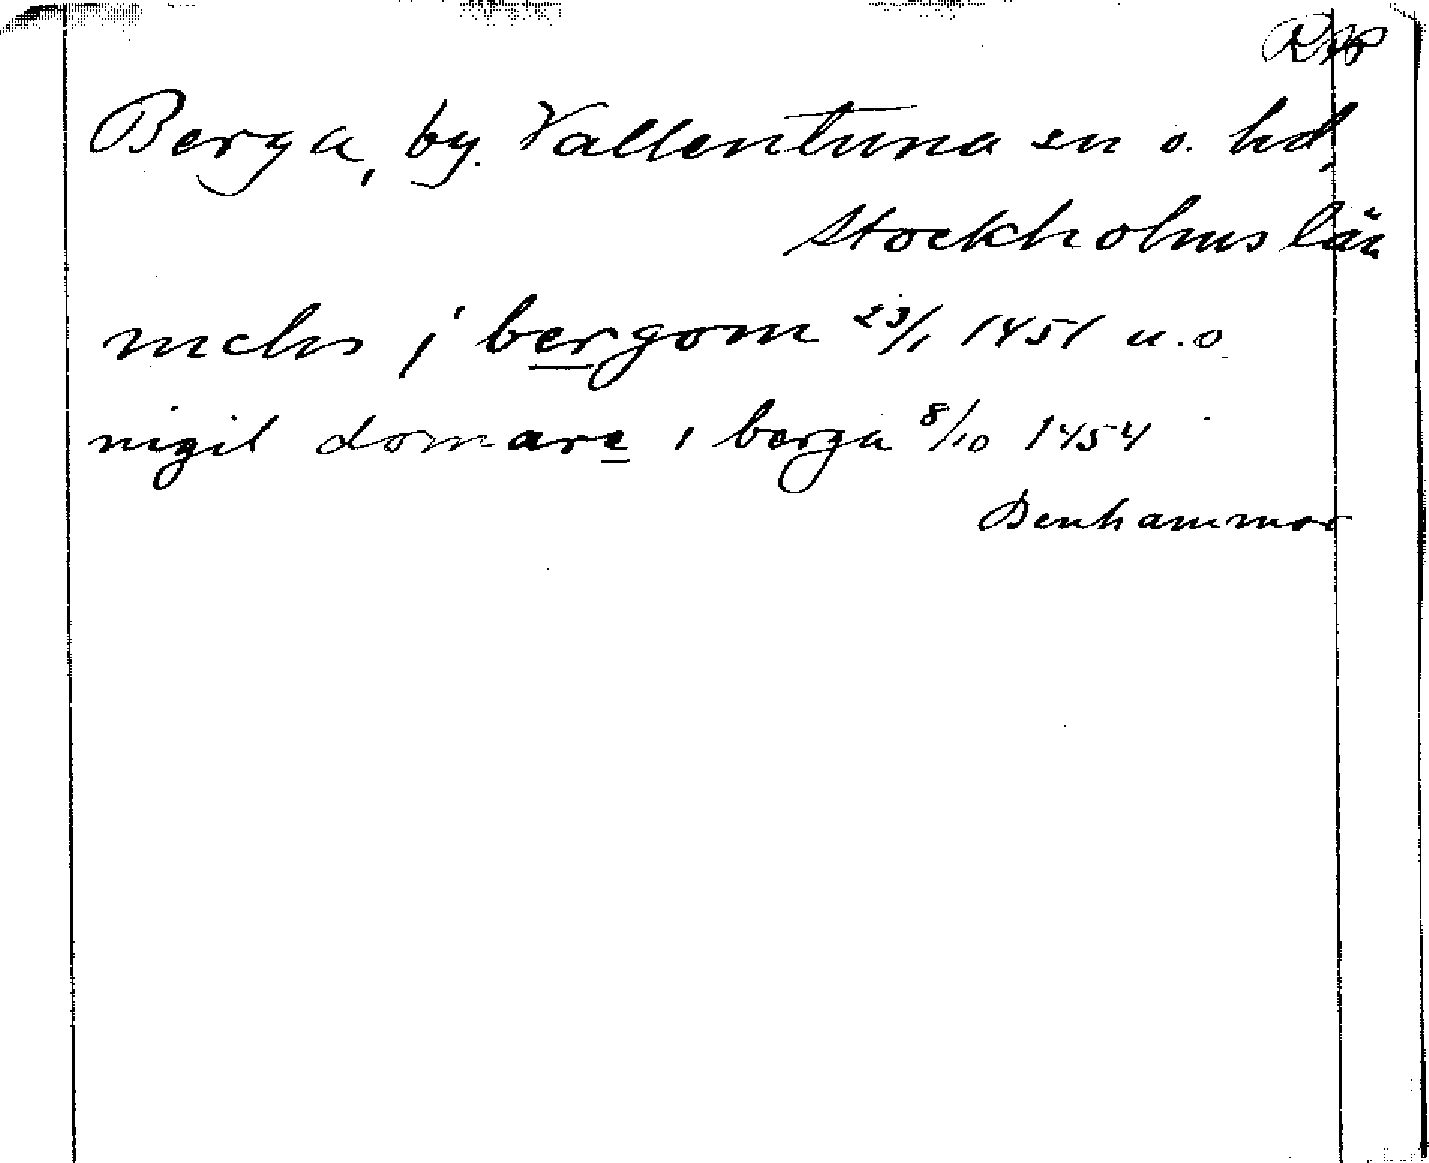 Berga, by. Vallentuna sn o. hd,
Stockholms län
mchs j bergom 23/1 1451 u.o
nigil domare i berga 8/10 1454
Benhammar